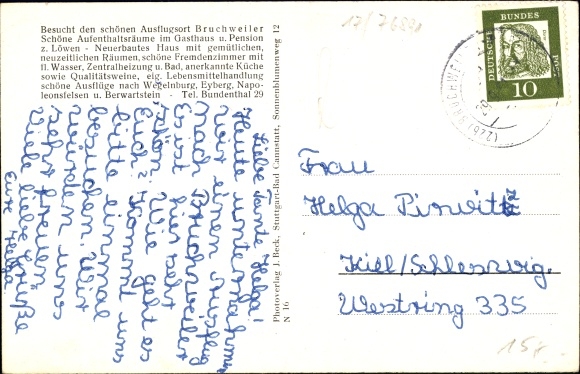 Besucht den schönen Ausflugsort Bruchweiler
Schöne Aufenthaltsräume im Gasthaus u. Pension
z. Löwen - Neuerbautes Haus mit gemütlichen,
neuzeitlichen Räumen, schöne Fremdenzimmer mit
fl. Wasser, Zentralheizung u. Bad, anerkannte Küche
sowie Qualitätsweine, eig. Lebensmittelhandlung
schöne Ausflüge nach Wegelnburg, Eyberg, Napo-
leonsfelsen u. Berwartstein - Tel. Bundenthal 29
Liebe Tante Helga!
Heute unternahmen
wir einen Ausflug
nach Bruchweiler
Es ist hier sehr
schön. Wie geht es
Euch? Kommt uns
bitte einmal
besuchen. Wir
würden uns
sehr freuen.
Viele liebe Grüße
Eure Helga
Photoverlag J. Beck, Stuttgart-Bad Cannstatt, Sonnenblumenweg 12
N 16
DEUTSCHE BUNDES POST
10
Frau
Helga Pirwitz
Kiel/Schleswig.
Westring 335